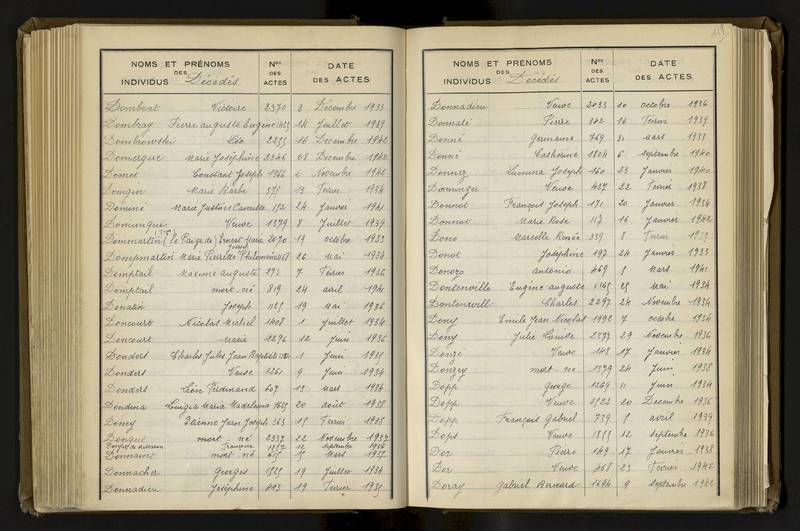 NOMS ET PRÉNOMS DES INDIVIDUS Décédés Nos DES ACTES DATE DES ACTES
Dombrat Victoire 2370 8 Décembre 1933
Dombray Pierre auguste Eugène 14 Juillet 1939
Dombrowski Léa 2255 16 Decembre 1942
Domergue Marie Joséphine 2346 28 Decembre 1942
Domet Constant Joseph 1966 2 Novembre 1942
Domgin Marie Barbe 371 13 Fevrier 1934
Dominé Marie Justine Camille 172 24 Janvier 1941
Dominique Veuve 1379 8 Juillet 1939
Dommartin (le Paige de) Ernest Maria Joseph 2070 19 octobre 1933
Dompmartin Marie Pierrette Philomène 26 Mai 1934
Domptail Maxime auguste 7 Février 1936
Domptail mort-né 819 24 avril 1941
Donatin Joseph 1125 19 Mai 1936
Doncourt Nicolas Michel 1408 1 Juillet 1934
Doncourt Marie 1296 12 Juin 1936
Donders Charles Jules Jean Baptiste 1 Juin
Donders Veuve 1261 9 Juin 1934
Donders Léon Ferdinand 607 13 Mars 1936
Dondena Luigia Maria Madeleina 20 août 1938
Doney Etienne Jean Joseph 363 15 Février 1938
Dongus mort-né 2337 22 Novembre 1937
Françoise 1857 12 Septembre 1936
Donnainet mort-né Mars 1937
Donnacher Georges 1525 19 Juillet 1934
Donnadieu Joséphine 19 Février 1935
NOMS ET PRÉNOMS DES INDIVIDUS Décédés Nos DES ACTES DATE DES ACTES
Donnadieu Veuve 2033 10 octobre 1936
Donnaté Pierre 342 16 Février 1939
Donné Germaine 769 31 Mars 1933
Donné Catherine 1804 6 Septembre 1940
Donnez Lumina Joseph 160 23 Janvier 1940
Donninger Veuve 427 22 Février 1938
Donnot François Joseph 171 20 Janvier 1934
Donnot Marie Rose 117 16 Janvier 1942
Dono Marcelle Renée 339 8 Février
Donot Joséphine 197 24 Janvier 1933
Donozo antonio 469 5 Mars 1941
Dontenville Eugène auguste 1165 25 Mai 1934
Dontenvill Charles 2297 24 Novembre 1934
Dony Emile Jean Nicolas 1992 7 octobre 1934
Dony Julie Louise 2377 29 Novembre 1936
Donzé Veuve 148 17 Janvier 1934
Donzey mort-né 1379 24 Juin 1938
Dopp George 1269 11 Juin 1934
Dopp Veuve 2522 20 Decembre 1936
Dopp François Gabriel 739 5 avril 1939
Dops Veuve 1855 12 Septembre 1936
Dor Pierre 149 17 Janvier 1938
Dor Veuve 468 23 Février 1942
Doray Gabriel Bernard 1694 9 Septembre 1942